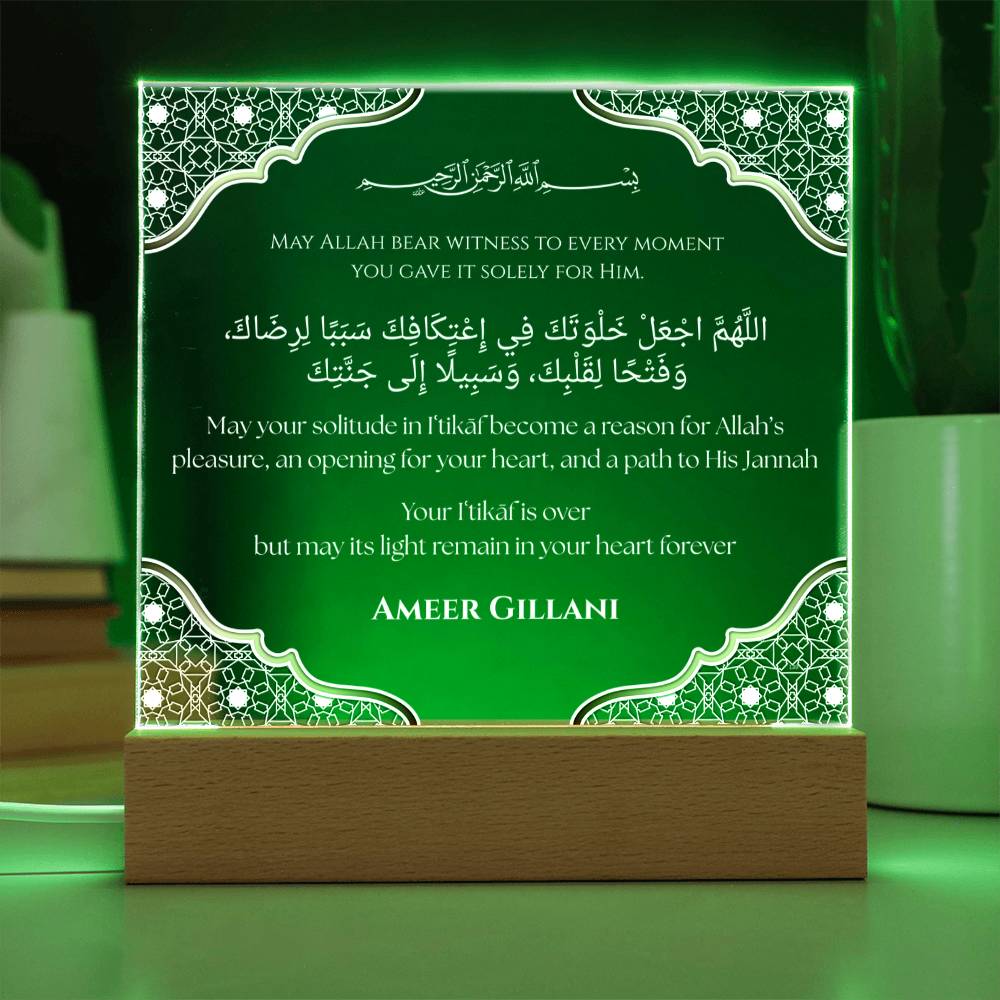 بِسْمِ ٱللَّهِ ٱلرَّحْمَٰنِ ٱلرَّحِيمِ
MAY ALLAH BEAR WITNESS TO EVERY MOMENT
YOU GAVE IT SOLELY FOR HIM.
اللَّهُمَّ اجْعَلْ خَلْوَتَكَ فِي إِعْتِكَافِكَ سَبَبًا لِرِضَاكَ،
وَفَتْحًا لِقَلْبِكَ، وَسَبِيلًا إِلَى جَنَّتِكَ
May your solitude in Iʿtikāf become a reason for Allah’s
pleasure, an opening for your heart, and a path to His Jannah
Your Iʿtikāf is over
but may its light remain in your heart forever
AMEER GILLANI